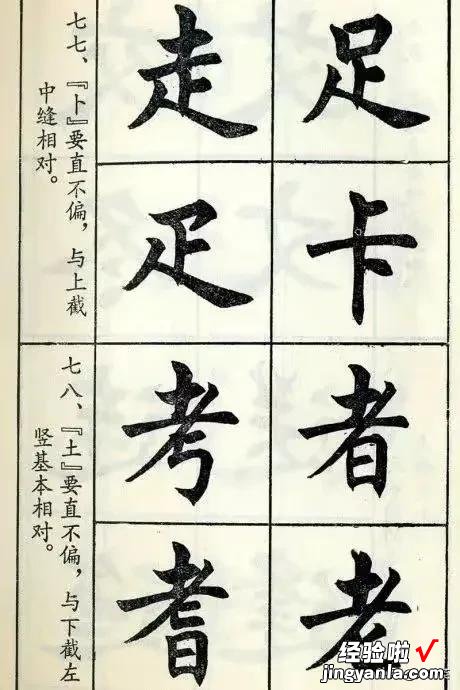 七七、『卜』要直不偏，与上截
中缝相对。
足 走
卡 疋
七八、『土』要直不偏，与下截左
竖基本相对。
者 考
耆
经验啦√
jingyanla.com